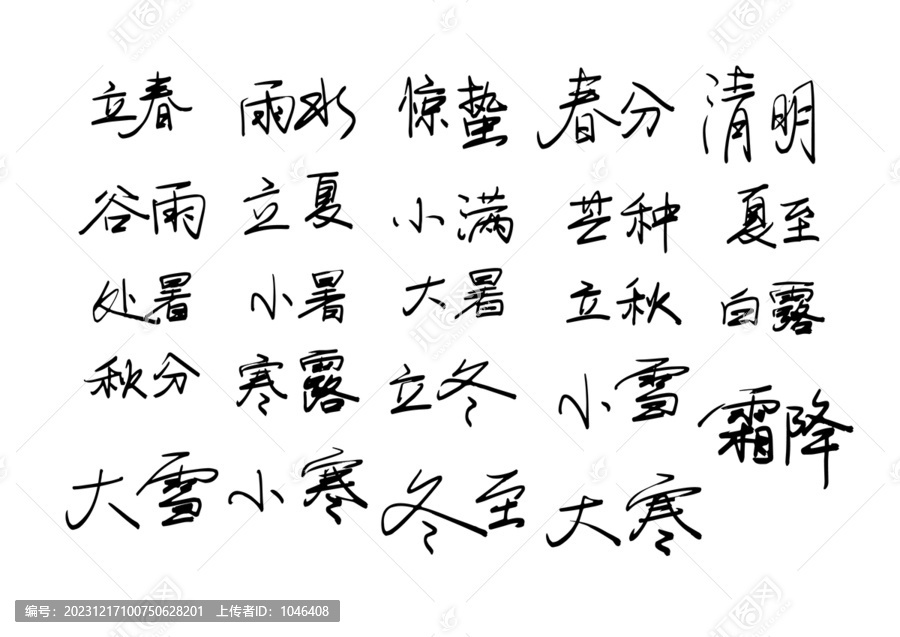 立春 雨水 惊蛰 春分 清明
谷雨 立夏 小满 芒种 夏至
处暑 小暑 大暑 立秋 白露
秋分 寒露 立冬 小雪 霜降
大雪 小寒 冬至 大寒
编号：20231217100750628201 上传者ID：1046408